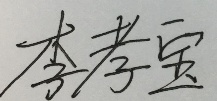 李孝宝